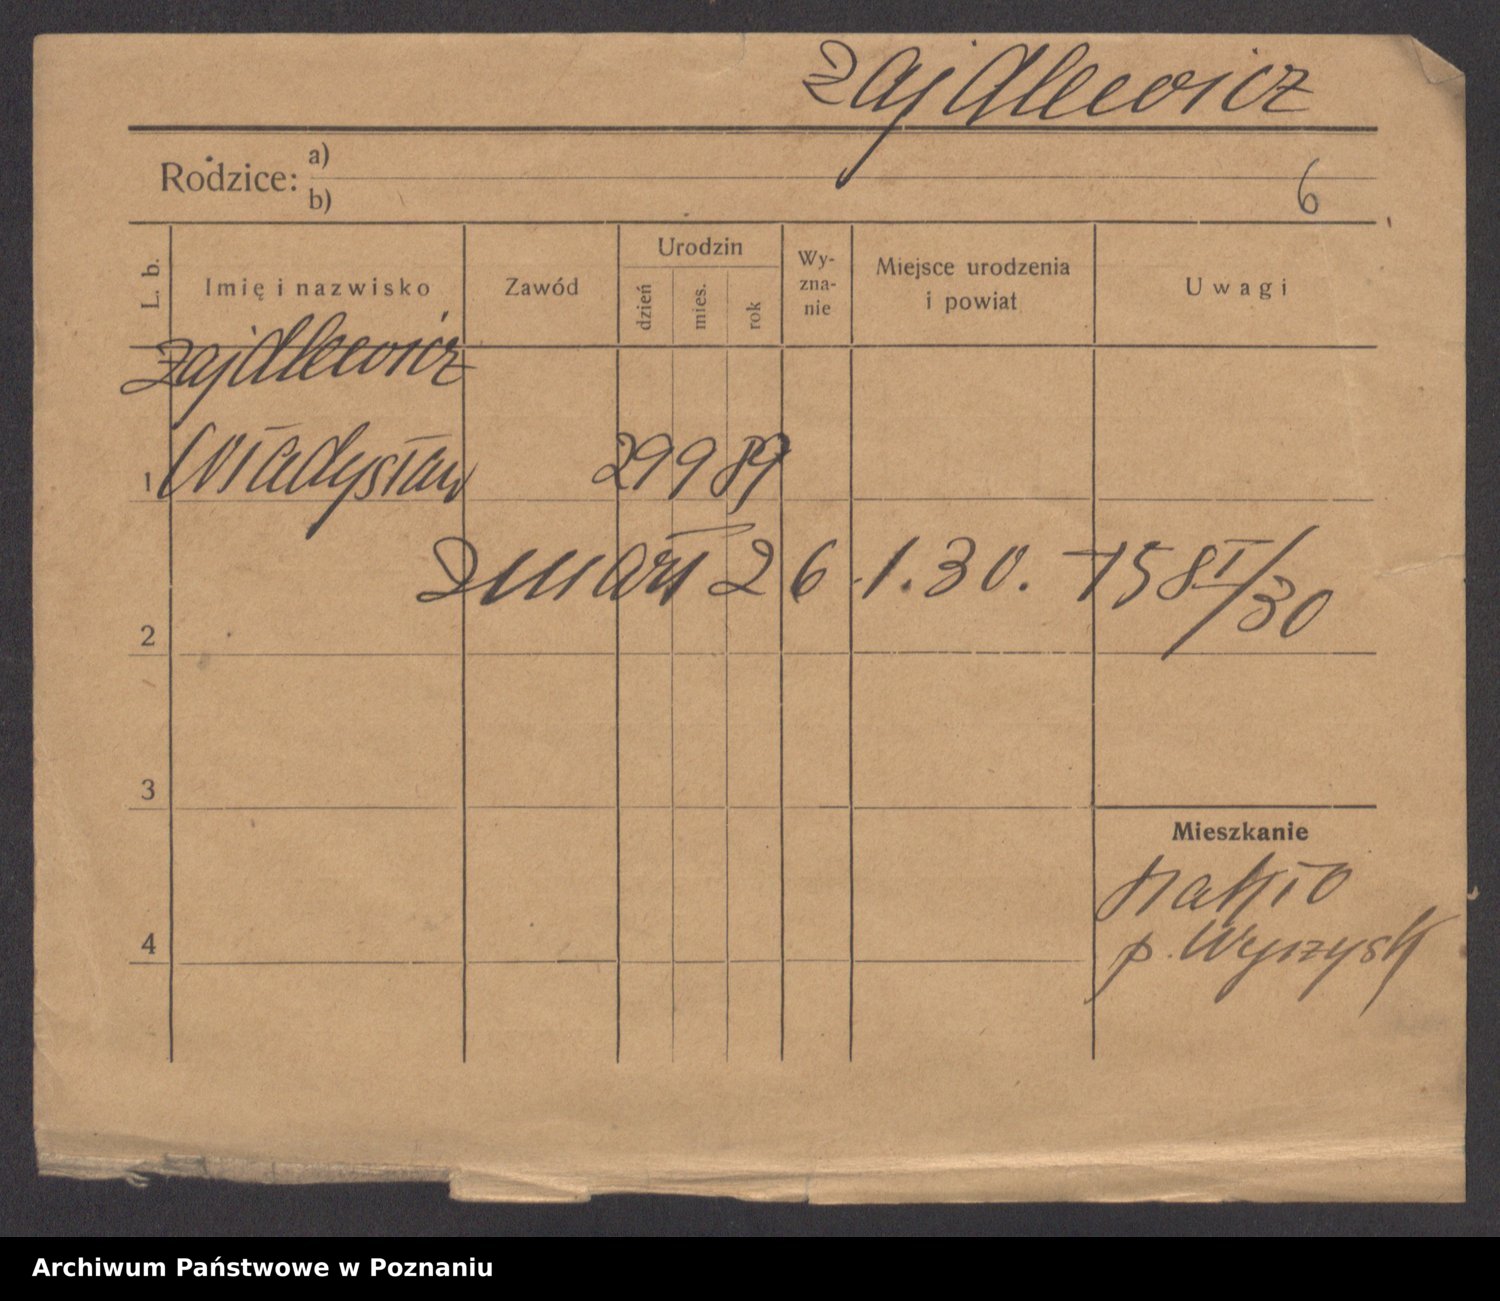 Zajdlewicz
Rodzice: a)
b)
6
L. b.
Imię i nazwisko
Zawód
Urodzin
dzień
mies.
rok
Wy-
zna-
nie
Miejsce urodzenia
i powiat
Uwagi
Zajdlewicz
1 Władysław 29 9 89
zmarł 26.1.30. - 158 I/30
2
3
Mieszkanie
Nakło
4
p. Wyrzysk
Archiwum Państwowe w Poznaniu